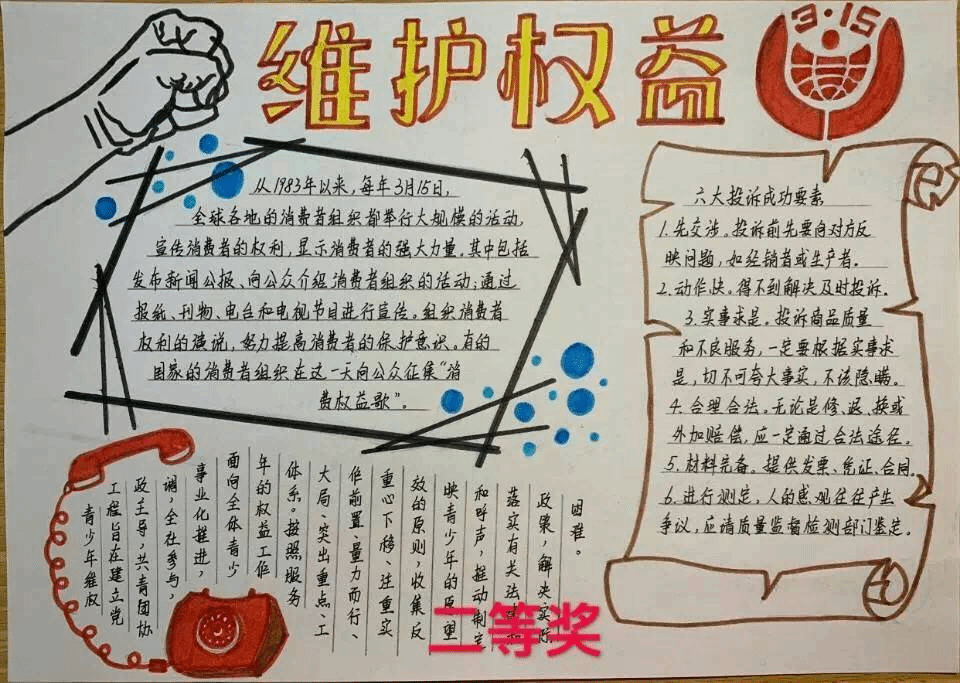 维护权益
3·15
从1983年以来,每年3月15日,
全球各地的消费者组织都举行大规模的活动,
宣传消费者的权利,显示消费者的强大力量。其中包括
发布新闻公报、向公众介绍消费者组织的活动;通过
报纸、刊物、电台和电视节目进行宣传。组织消费者
权利的演说,努力提高消费者的保护意识。有的
国家的消费者组织在这一天向公众征集“消
费权益歌”。
六大投诉成功要素
1.先交涉。投诉前先要向对方反
映问题,如经销者或生产者。
2.动作快。得不到解决及时投诉。
3.实事求是。投诉商品质量
和不良服务,一定要根据实事求
是,切不可夸大事实,不该隐瞒。
4.合理合法。无论是修、退、换或
外加赔偿,应一定通过合法途径。
5.材料完备。提供发票、凭证、合同。
6.进行测定,人的感观往往产生
争议,应请质量监督检测部门鉴定。
青少年维权
工程旨在建立党
政主导,共青团协
调,全社参与,
事业化推进,
面向全体青少
年的权益工作
体系。按照服务
大局、突出重点、工
作前置、量力而行、
重心下移、注重实
效的原则,收集反
映青少年的愿望
和呼声,推动制定
落实有关法
政策,解决实际
困难。
二等奖